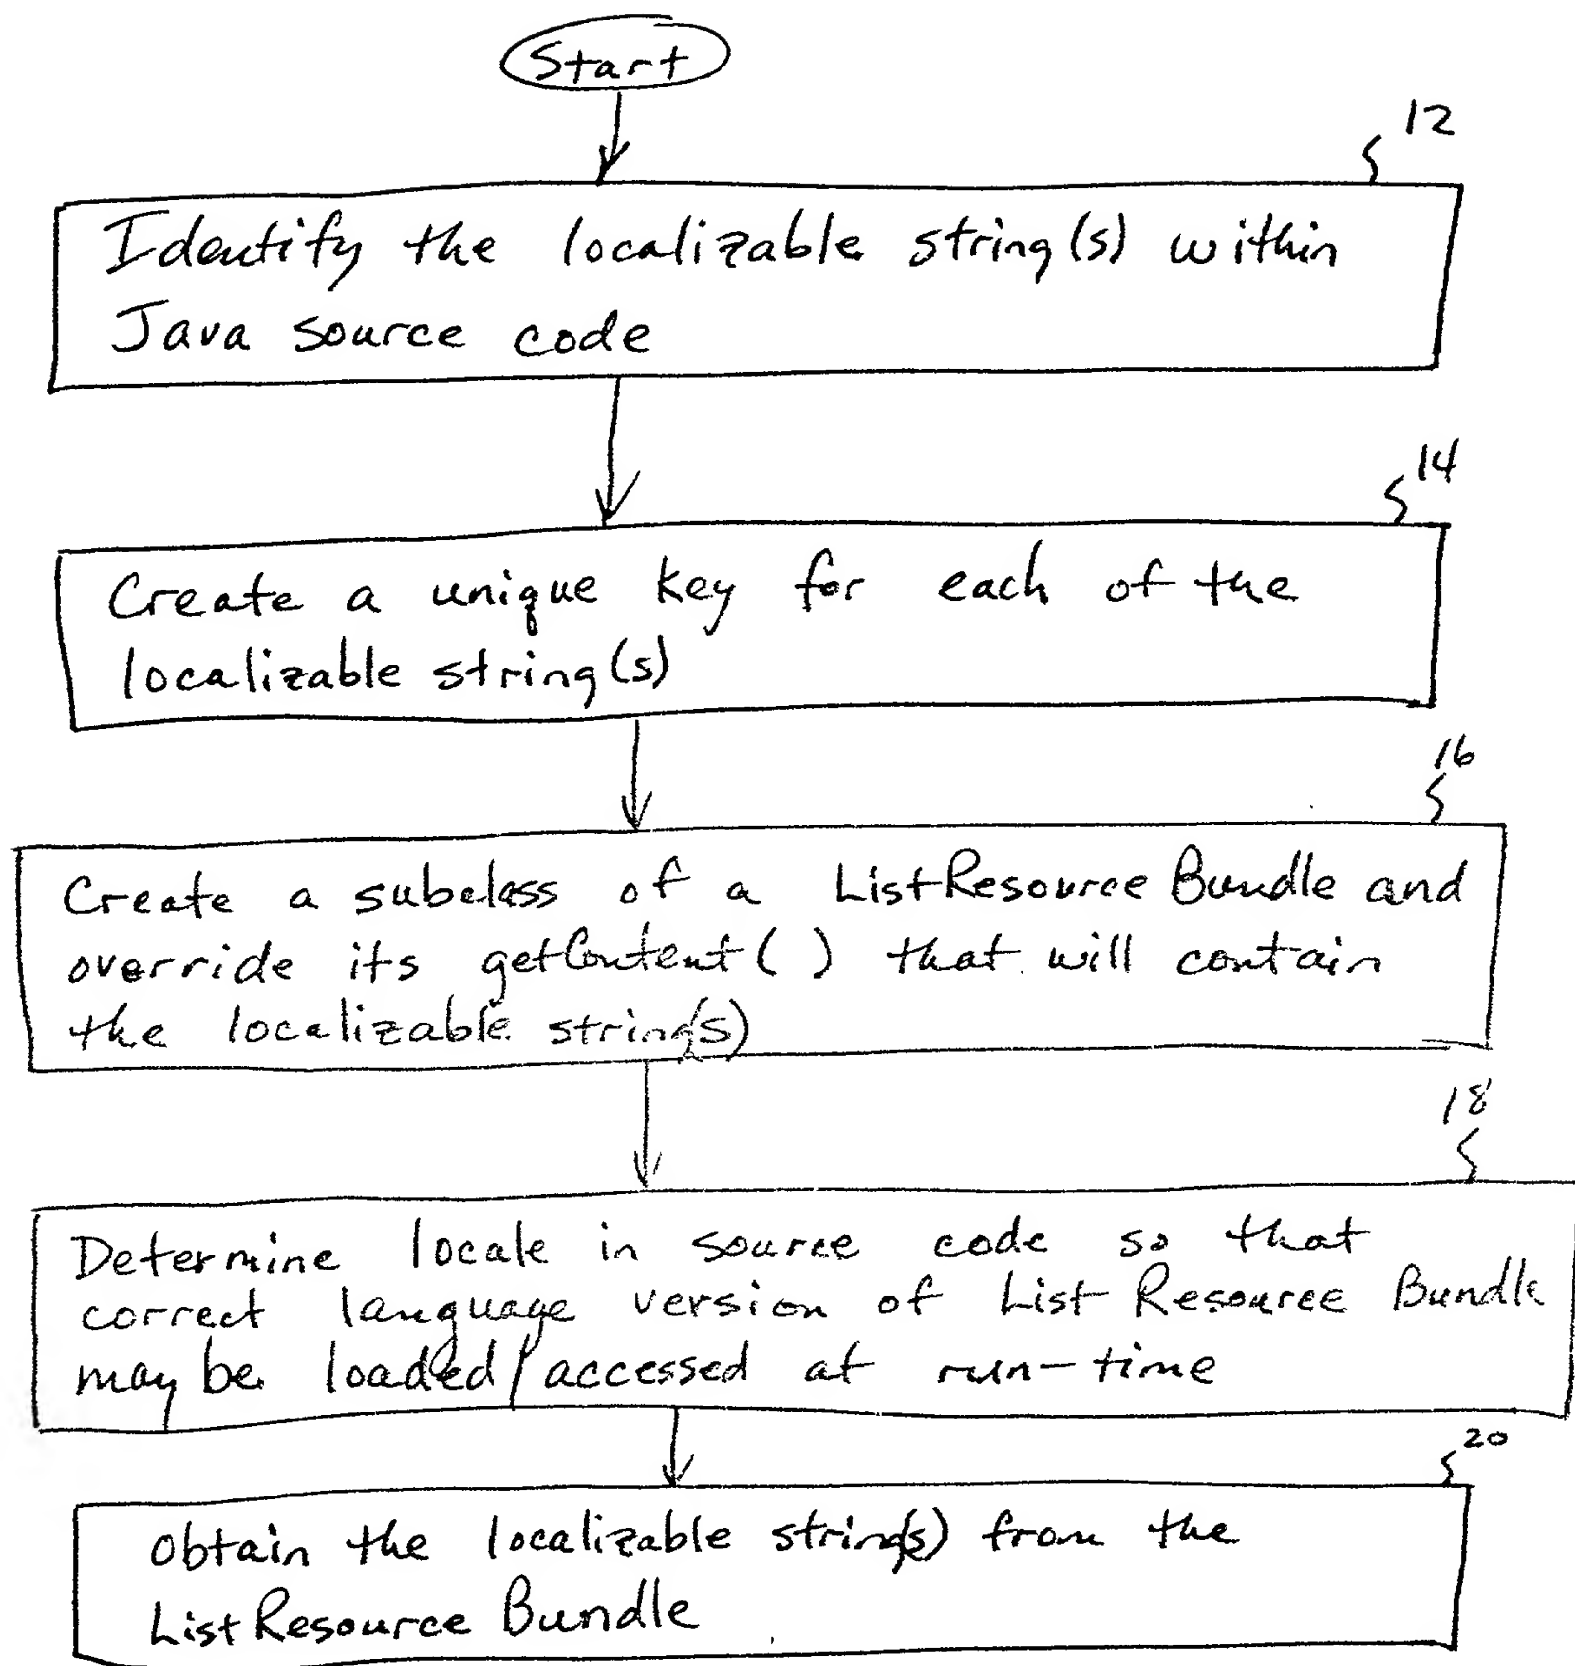 Start
12
Identify the localizable string(s) within
Java source code
14
Create a unique key for each of the
localizable string(s)
16
Create a subclass of a ListResourceBundle and
override its getContent() that will contain
the localizable string(s)
18
Determine locale in source code so that
correct language version of List Resource Bundle
may be loaded/accessed at run-time
20
Obtain the localizable string(s) from the
ListResource Bundle